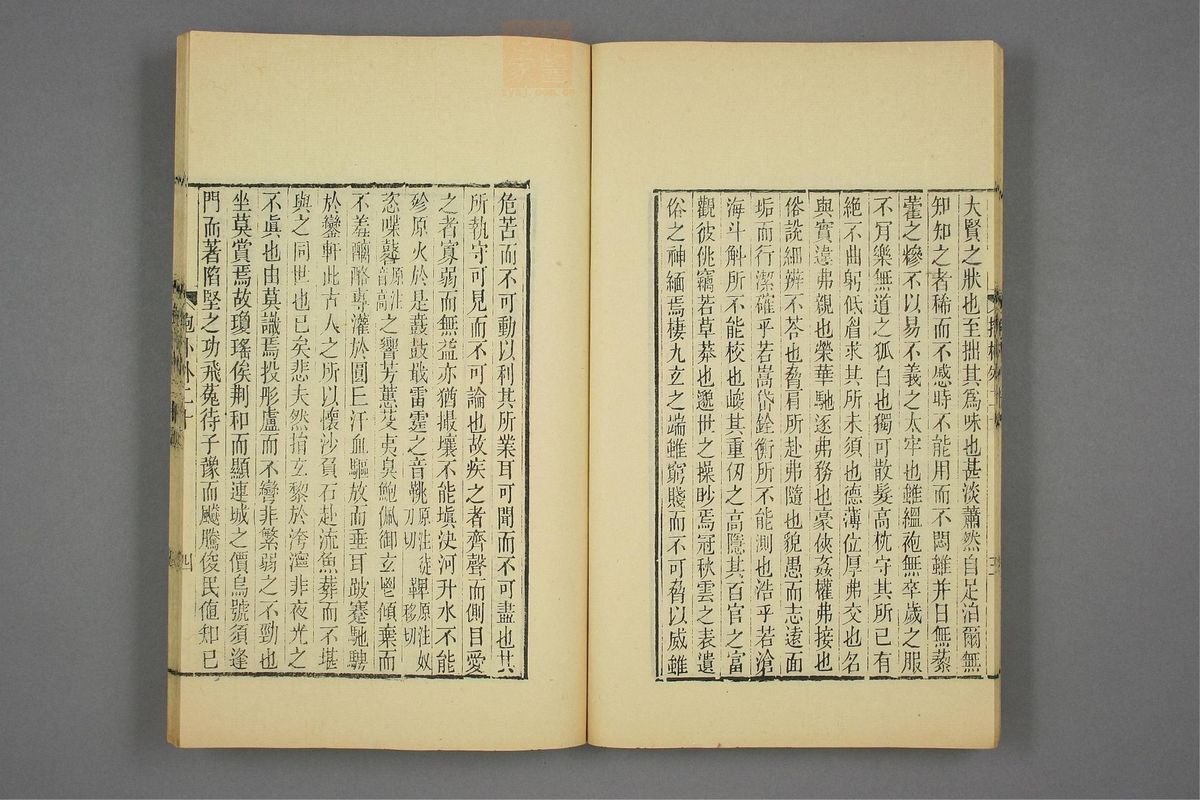 大賢之狀也至拙其爲味也甚淡蕭然自足泊爾無
知知之者稀而不慼時不能用而不悶雖并日無藜
藿之糝不以易不義之太牢也雖緼袍無卒歲之服
不肎樂無道之狐白也獨可散髮高枕守其所已有
絶不曲躬低眉求其所未須也德薄位厚弗交也名
與實違弗親也榮華馳逐弗務也豪俠姦權弗接也
俗說細辨不荅也脅肩所赴弗隨也貌愚而志遠面
垢而行潔確乎若嵩岱銓衡所不能測也浩乎若滄
海斗斛所不能校也峻其重仞之高隱其百官之富
觀彼佻竊若草莽也邈世之操眇焉冠秋雲之表遺
俗之神緬焉棲九玄之端雖窮賤而不可脅以威雖
危苦而不可動以利其所業耳可聞而不可盡也其
所執守可見而不可論也故疾之者齊聲而側目愛
之者寡弱而無益亦猶撮壤不能塡決河升水不能
殄原火於是䵻鼓戢雷霆之音鞉原注徒刀切鞞原注奴移切
恣喋鼛原注音高之響芳蕙芟夷臭鮑佩御玄鬯傾棄而
不羞醨酪專灌於圓丘汗血驅放而垂耳跛蹇馳騁
於鑾軒此古人之所以懷沙負石赴流魚葬而不堪
與之同世也已矣悲夫然捐玄黎於洿濘非夜光之
不眞也由莫識焉投彤盧而不彎非繁弱之不勁也
坐莫賞焉故瓊瑤俟荆和而顯連城之價烏號須逢
門而著陷堅之功飛菟待子豫而飈騰俊民値知己
抱小外二十
四
三